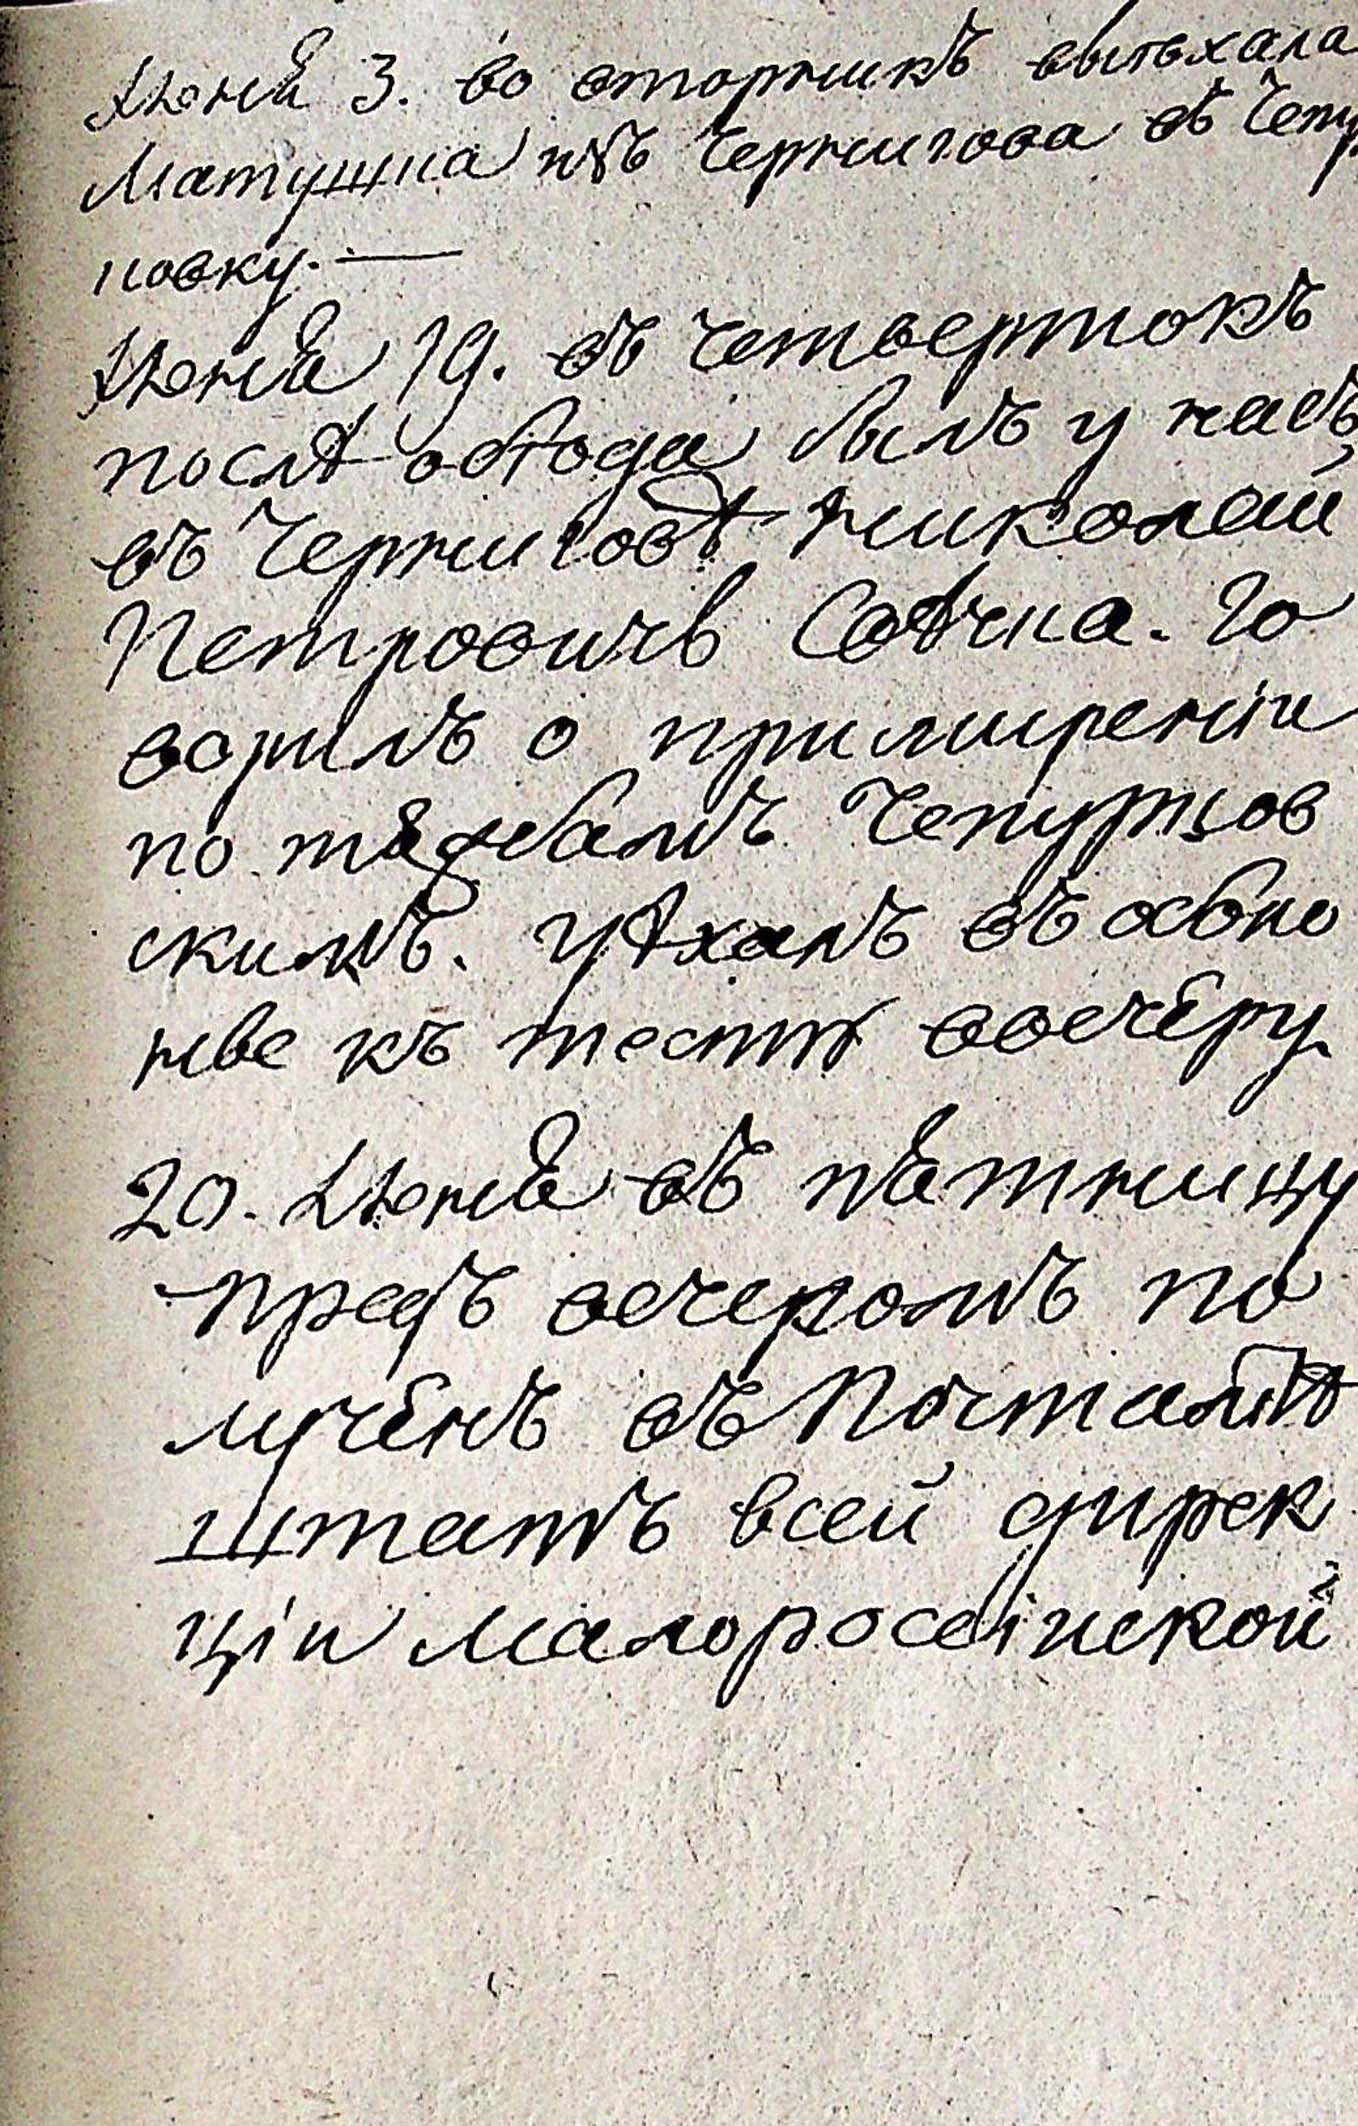 Июня 3. во вторникъ выѣхала
Матушка изъ Чернигова въ Чепур
новку. —
Июня 19. въ четвертокъ
послѣ обѣда былъ у насъ
въ Черниговѣ Николай
Петровичъ Свѣчка. Го
ворилъ о примиреніи
по тяжбамъ Чепурнов
скимъ. Уѣхалъ въ
къ вечеру
20. Июня въ пятницу
предъ вечеромъ по
лученъ въ Почтамтѣ
штатъ всей дирек
ціи малоросс­ійской